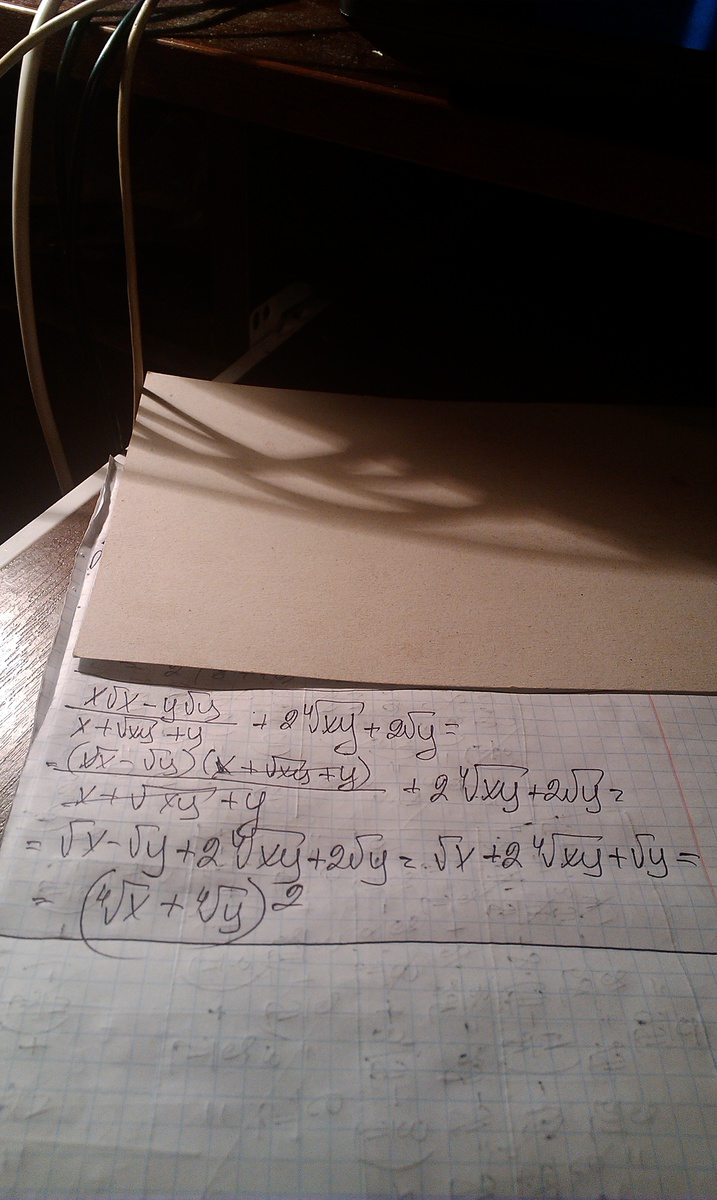 (x√x − y√y)/(x + √xy + y) + 2∜xy + 2√y =
= (√x − √y)(x + √xy + y)/(x + √xy + y) + 2∜xy + 2√y =
= √x − √y + 2∜xy + 2√y = √x + 2∜xy + √y =
= (∜x + ∜y)²